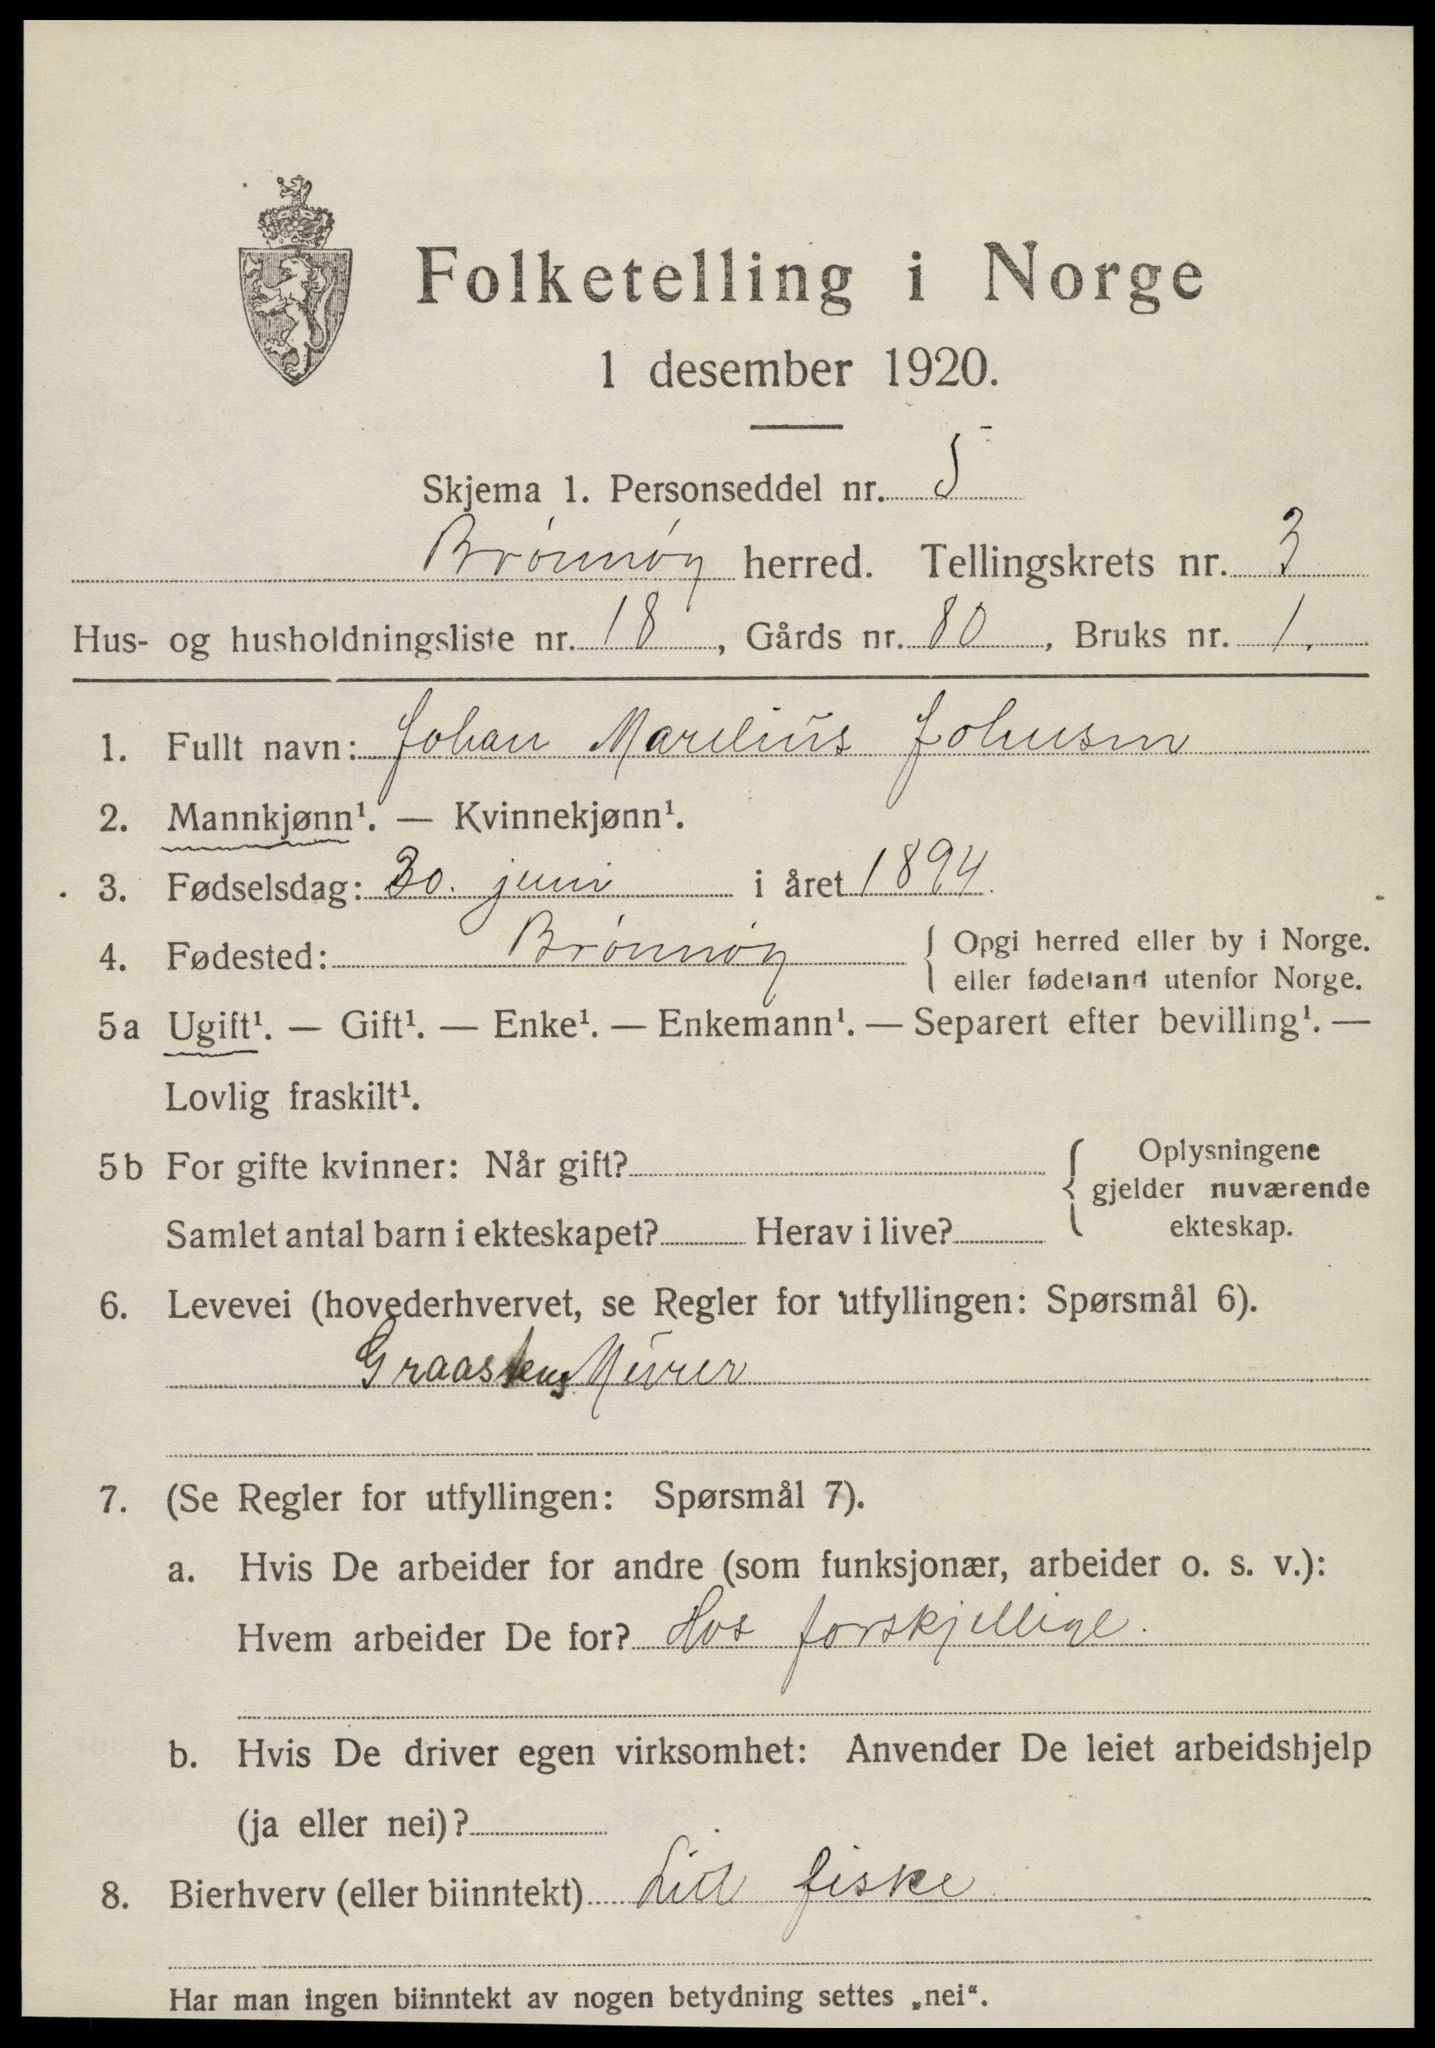 Folketelling i Norge
1 desember 1920.
Skjema 1. Personseddel nr. 5
Brønnøy herred. Tellingskrets nr. 3
Hus- og husholdningsliste nr. 18, Gårds nr. 80, Bruks nr. 1.
1. Fullt navn: Johan Marelius Johnsen
2. Mannkjønn¹. — Kvinnekjønn¹.
3. Fødselsdag: 30. juni i året 1894.
4. Fødested: Brønnøy { Opgi herred eller by i Norge.
eller fødeland utenfor Norge.
5a Ugift¹. — Gift¹. — Enke¹. — Enkemann¹. — Separert efter bevilling¹. —
Lovlig fraskilt¹.
5b For gifte kvinner: Når gift? { Oplysningene
gjelder nuværende
Samlet antal barn i ekteskapet? Herav i live? ekteskap.
6. Levevei (hovederhvervet, se Regler for utfyllingen: Spørsmål 6).
Graastens Mürer
7. (Se Regler for utfyllingen: Spørsmål 7).
a. Hvis De arbeider for andre (som funksjonær, arbeider o. s. v.):
Hvem arbeider De for? Hos forskjellige.
b. Hvis De driver egen virksomhet: Anvender De leiet arbeidshjelp
(ja eller nei)?
8. Bierhverv (eller biinntekt) Litt fiske
Har man ingen biinntekt av nogen betydning settes „nei“.